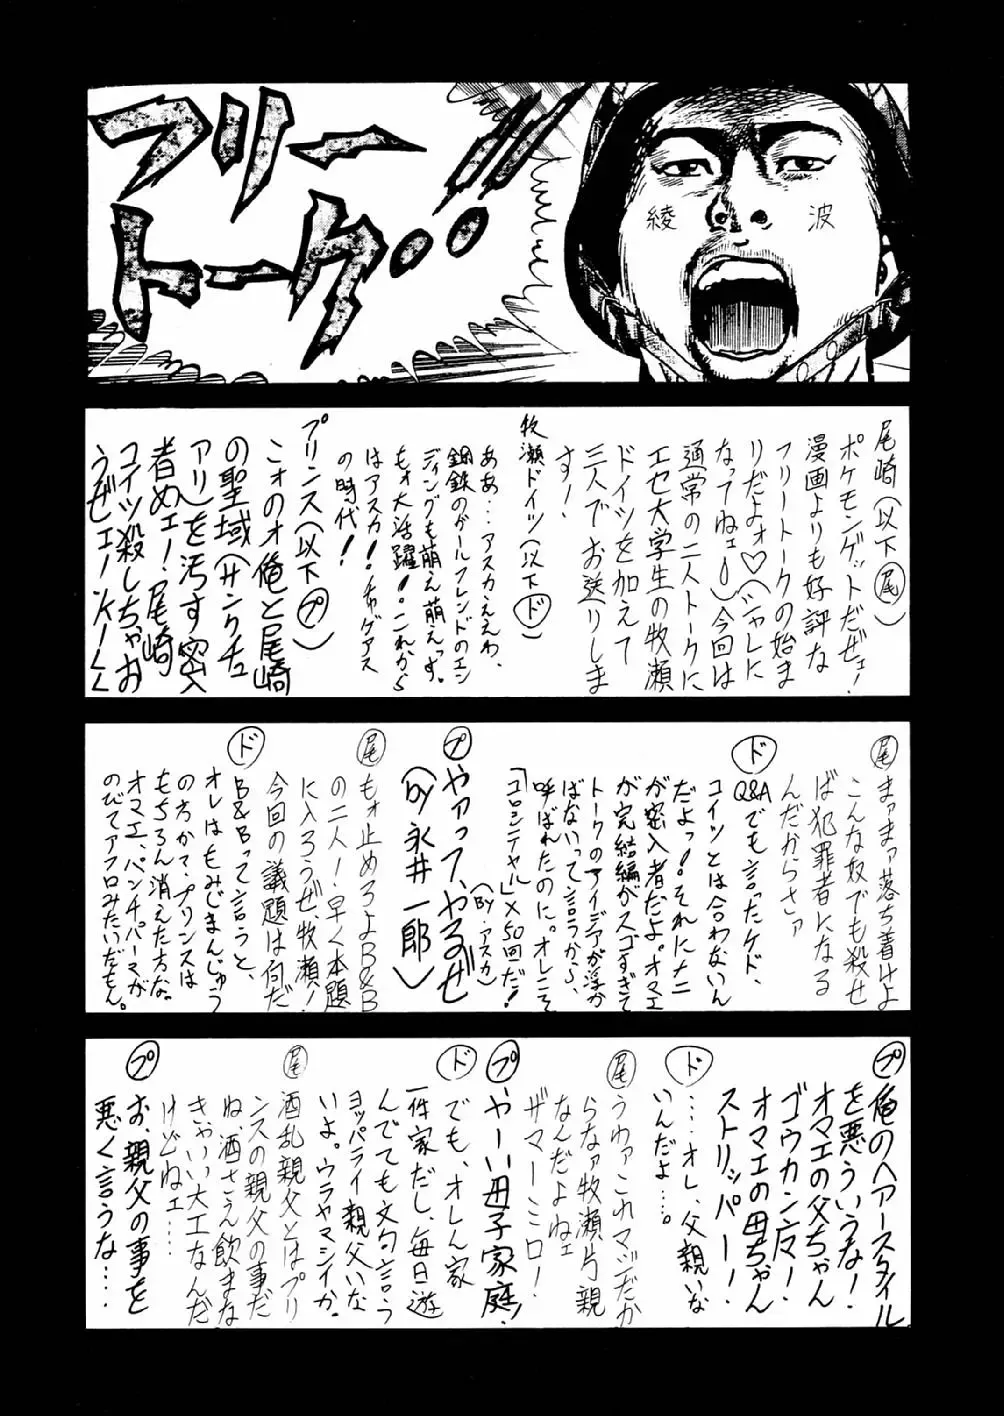 フリー
トーク‥!!
綾波
尾崎(以下尾)
ポケモンゲットだぜェ!
漫画よりも好評な
フリートークの始ま
りだよォ♡(シャレに
なってねェ)今回は
通常の二人トークに
エセ大学生の牧瀬
ドイツを加えて
三人でお送りしま
す!
牧瀬ドイツ(以下ド)
ああ…アスカええわ、
鋼鉄のガールフレンドのエン
ディングも萌え萌えっす。
もォ大活躍!これから
はアスカ!チャゲアス
の時代!
プリンス(以下プ)
こォのオ俺と尾崎
の聖域(サンクチュ
アリ)を汚す密入
者めェ!尾崎
コイツ殺しちゃお
うぜェー
尾
まァまァ落ち着けよ
こんな奴でも殺せ
ば犯罪者になる
んだからさァ
ド
Q&Aでも言ったケド、
コイツとは合わないん
だよっ!それにナニ
が密入者だよ。オマエ
が完結編がスゴすぎて
トークのアイデアが浮か
ばないって言うから、
呼ばれたのに。オレにそ
「コロシテヤル」×50回だ!
(By アスカ)
プ
やァって、やるぜ
(by 永井一郎)
尾
もォ止めろよB&B
の二人!早く本題
に入ろうぜ、牧瀬!
今回の議題は何だ
ド
B&Bって言うと、
オレはもみじまんじゅう
の方かで、プリンスは
もちろん消えた方な。
オマエ、パンチパーマが
のびてアフロみたいだもん。
プ
俺のヘアースタイル
を悪ういうな!
オマエの父ちゃん
ゴウカン魔!
オマエの母ちゃん
ストリッパー!
ド
…オレ、父親いな
いんだよ…。
尾
うわァこれマジだか
らなァ牧瀬片親
なんだよねェ
ザマーミロ!
プ
やーい母子家庭!
ド
でも、オレん家
一件家だし、毎日遊
んでても文句言う
ヨッパライ親父いな
いよ。ウラヤマシイか。
尾
酒乱親父とはプリ
ンスの親父の事だ
ね、酒さえ飲まな
きゃいい大工なんだ
けどねェ…
プ
お、親父の事を
悪く言うな…